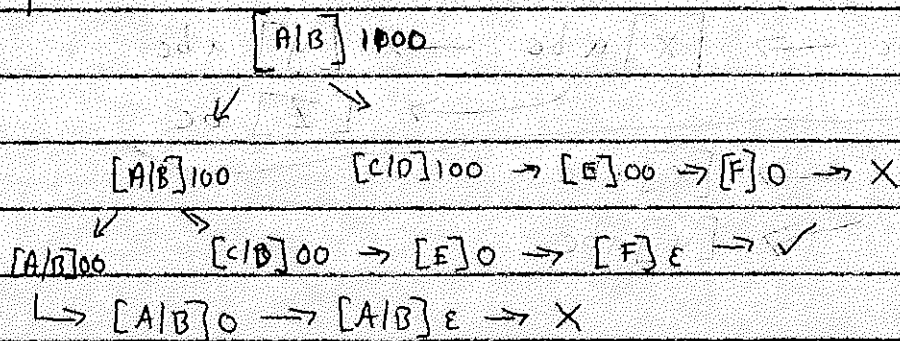 [A|B] 1000
[A|B]100 [C|D]100 → [E]00 → [F]0 → X
[A|B]00 [C|D]00 → [E]0 → [F]ε → ✓
↳ [A|B]0 → [A|B]ε → X